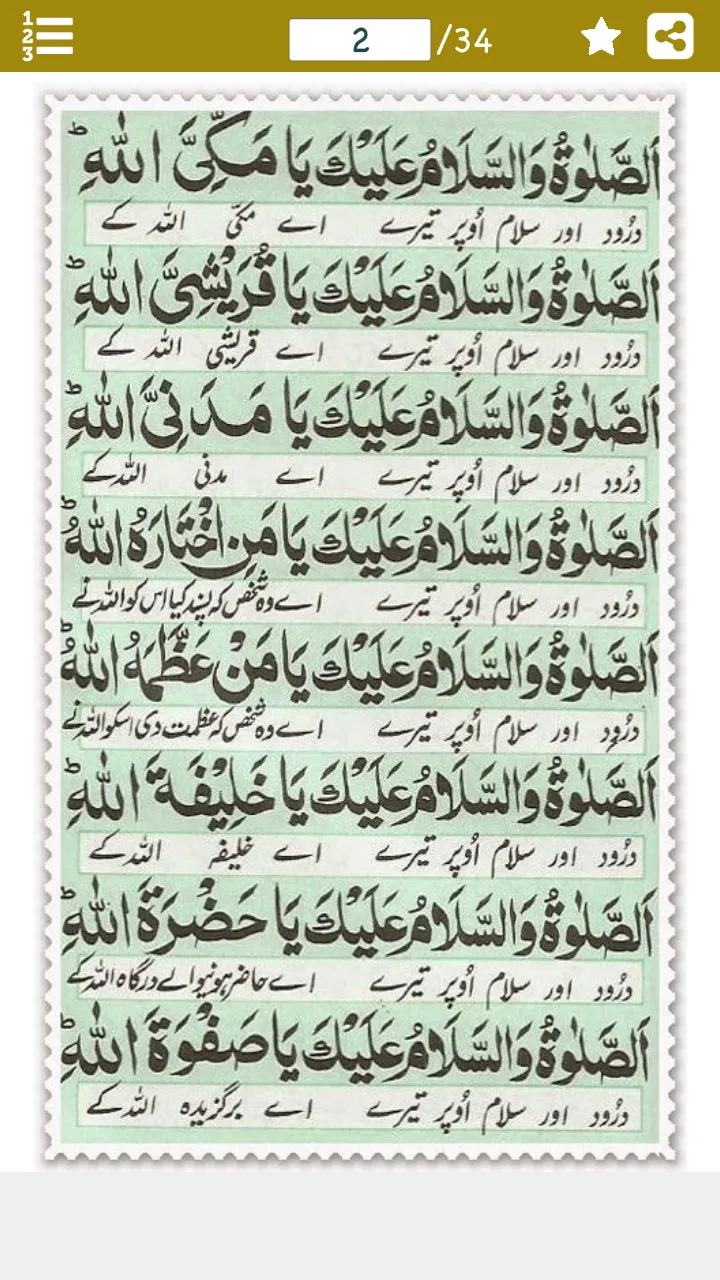 1 2 3
2 /34
اَلصَّلٰوةُ وَالسَّلَامُ عَلَيْكَ يَا مَكِّىَّ اللّٰهِ ؕ
درُود اور سلام اُوپر تیرے اے مکّی اللہ کے
اَلصَّلٰوةُ وَالسَّلَامُ عَلَيْكَ يَا قُرَيْشِىَّ اللّٰهِ ؕ
درُود اور سلام اُوپر تیرے اے قریشی اللہ کے
اَلصَّلٰوةُ وَالسَّلَامُ عَلَيْكَ يَا مَدَنِىَّ اللّٰهِ ؕ
درُود اور سلام اُوپر تیرے اے مدنی اللہ کے
اَلصَّلٰوةُ وَالسَّلَامُ عَلَيْكَ يَا مَنِ اخْتَارَهُ اللّٰهُ ؕ
درُود اور سلام اُوپر تیرے اے وہ شخص کہ پسند کیا اس کو اللہ نے
اَلصَّلٰوةُ وَالسَّلَامُ عَلَيْكَ يَا مَنْ عَظَّمَهُ اللّٰهُ ؕ
درُود اور سلام اُوپر تیرے اے وہ شخص کہ عظمت دی اسکو اللہ نے
اَلصَّلٰوةُ وَالسَّلَامُ عَلَيْكَ يَا خَلِيْفَةَ اللّٰهِ ؕ
درُود اور سلام اُوپر تیرے اے خلیفہ اللہ کے
اَلصَّلٰوةُ وَالسَّلَامُ عَلَيْكَ يَا حَضْرَةَ اللّٰهِ ؕ
درُود اور سلام اُوپر تیرے اے حاضر ہونیوالے درگاہ اللہ کے
اَلصَّلٰوةُ وَالسَّلَامُ عَلَيْكَ يَا صَفْوَةَ اللّٰهِ ؕ
درُود اور سلام اُوپر تیرے اے برگزیدہ اللہ کے